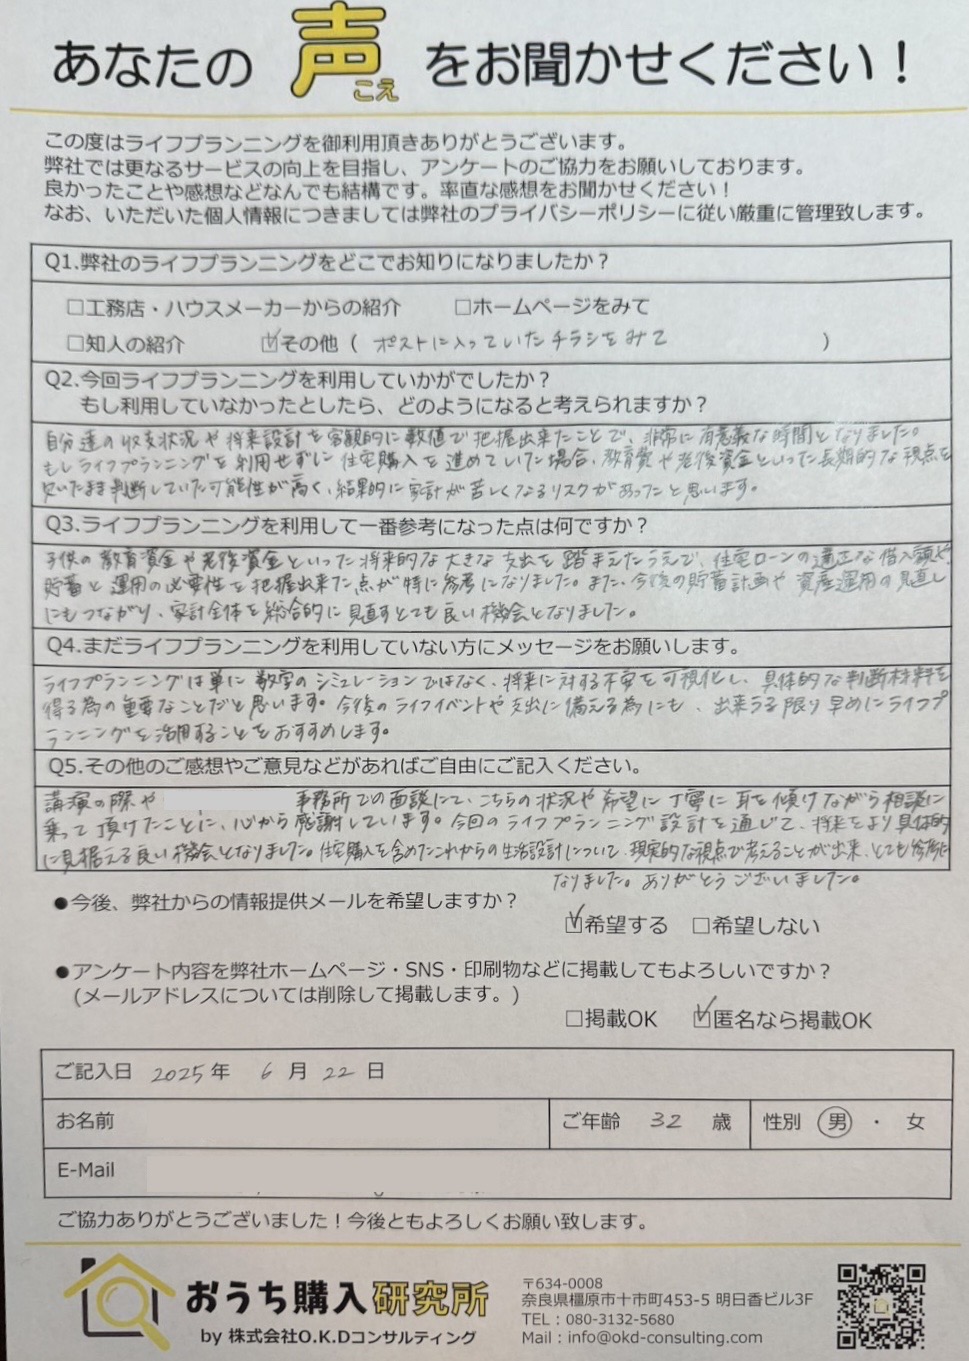 あなたの声をお聞かせください！
こえ
この度はライフプランニングを御利用頂きありがとうございます。
弊社では更なるサービスの向上を目指し、アンケートのご協力をお願いしております。
良かったことや感想などなんでも結構です。率直な感想をお聞かせください！
なお、いただいた個人情報につきましては弊社のプライバシーポリシーに従い厳重に管理致します。
Q1.弊社のライフプランニングをどこでお知りになりましたか？
□工務店・ハウスメーカーからの紹介 □ホームページをみて
□知人の紹介 ☑その他（ ポストに入っていたチラシをみて ）
Q2.今回ライフプランニングを利用していかがでしたか？
もし利用していなかったとしたら、どのようになると考えられますか？
自分達の収支状況や将来設計を客観的に数値で把握出来たことで、非常に有意義な時間となりました。
もしライフプランニングを利用せずに住宅購入を進めていた場合、教育費や老後資金といった長期的な視点を
欠いたまま判断していた可能性が高く、結果的に家計が苦しくなるリスクがあったと思います。
Q3.ライフプランニングを利用して一番参考になった点は何ですか？
子供の教育資金や老後資金といった将来的な大きな支出を踏まえたうえで、住宅ローンの適正な借入額や
貯蓄と運用の必要性を把握出来た点が特に参考になりました。また、今後の貯蓄計画や資産運用の見直し
にもつながり、家計全体を総合的に見直すとても良い機会となりました。
Q4.まだライフプランニングを利用していない方にメッセージをお願いします。
ライフプランニングは単に数字のシミュレーションではなく、将来に対する不安を可視化し、具体的な判断材料を
得る為の重要なことだと思います。今後のライフイベントや支出に備える為にも、出来うる限り早めにライフプ
ランニングを活用することをおすすめします。
Q5.その他のご感想やご意見などがあればご自由にご記入ください。
講演の際や 事務所での面談にて、こちらの状況や希望に丁寧に耳を傾けながら相談に
乗って頂けたことに、心から感謝しています。今回のライフプランニング設計を通じて、将来をより具体的
に見据える良い機会となりました。住宅購入を含めたこれからの生活設計について、現実的な視点で考えることが出来、とても参考に
なりました。ありがとうございました。
●今後、弊社からの情報提供メールを希望しますか？
☑希望する □希望しない
●アンケート内容を弊社ホームページ・SNS・印刷物などに掲載してもよろしいですか？
(メールアドレスについては削除して掲載します。)
□掲載OK ☑匿名なら掲載OK
ご記入日 2025年 6月 22日
お名前 ご年齢 32 歳 性別 男・女
E-Mail
ご協力ありがとうございました！今後ともよろしくお願い致します。
おうち購入研究所
by 株式会社O.K.Dコンサルティング
〒634-0008
奈良県橿原市十市町453-5 明日香ビル3F
TEL：080-3132-5680
Mail：info@okd-consulting.com